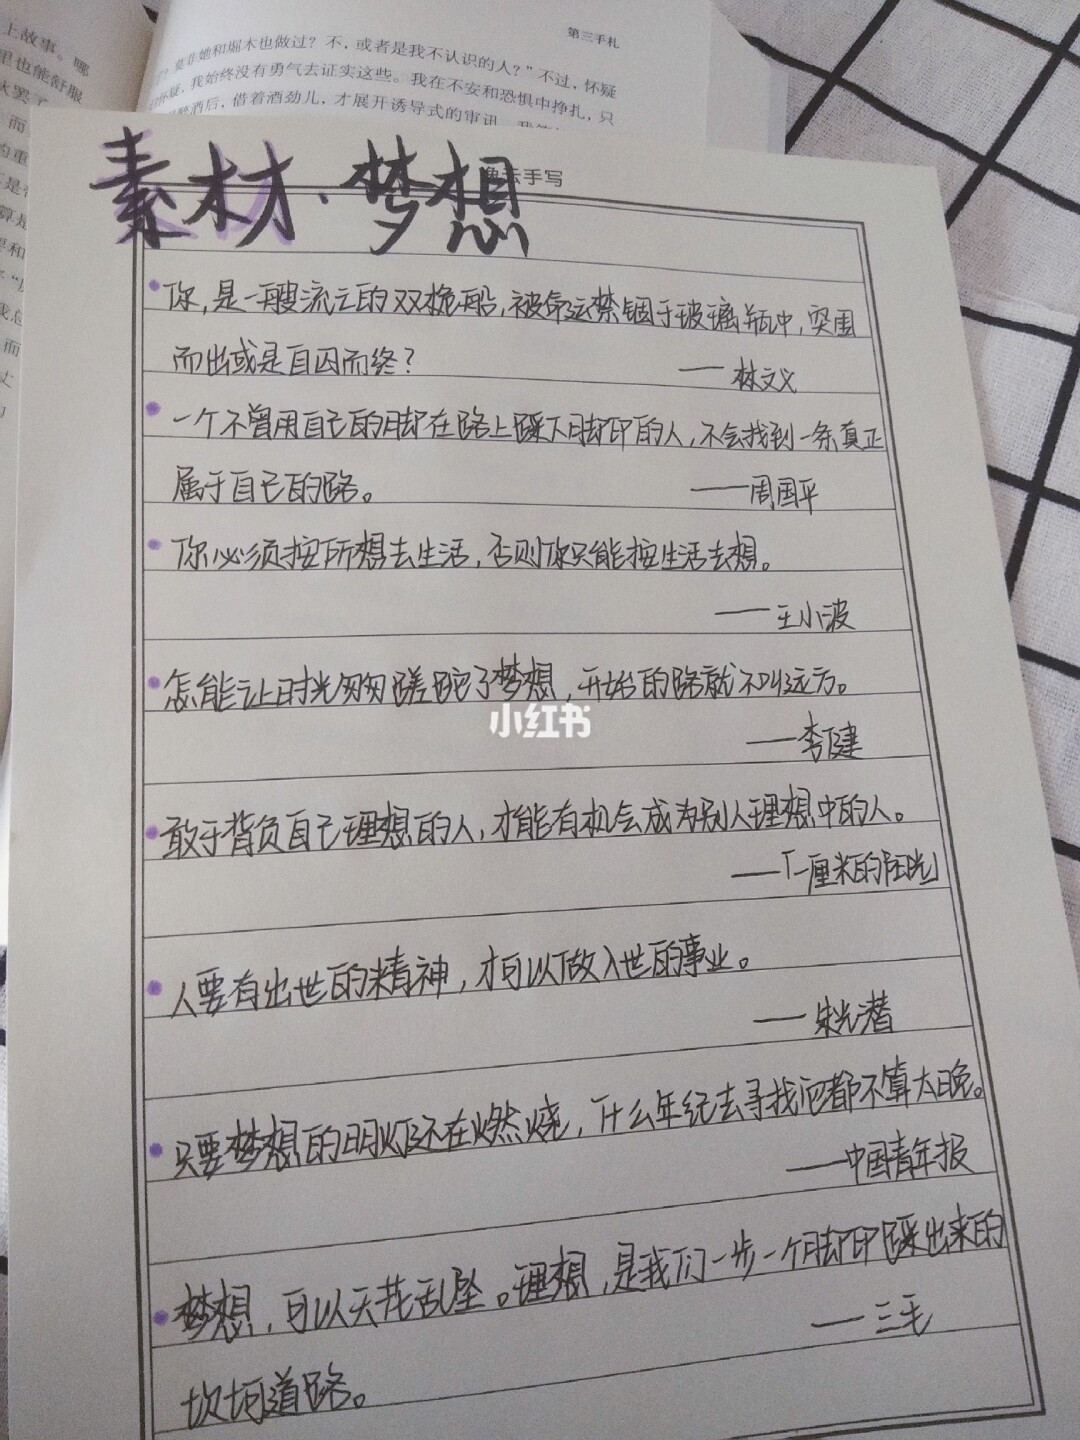 第三手札
莫非她和堀木也做过？不，或者是我不认识的人？”不过，怀疑
怀疑，我始终没有勇气去证实这些。我在不安和恐惧中挣扎，只
醉酒后，借着酒劲儿，才展开诱导式的审讯
上故事。哪
里也能舒服
手写
素材·梦想
你，是一艘流云的双桅船，被命运禁锢于玻璃瓶中，突围
而出或是自囚而终？
——林文义
一个不曾用自己的脚在路上踩下脚印的人，不会找到一条真正
属于自己的路。
——周国平
你必须按所想去生活，否则你只能按生活去想。
——王小波
怎能让时光匆匆蹉跎了梦想，开始的路就不叫远方。
小红书
——李健
敢于背负自己理想的人，才能有机会成为别人理想中的人。
——「一厘米的阳光」
人要有出世的精神，才可以做入世的事业。
——朱光潜
只要梦想的明灯还在燃烧，什么年纪去寻找它都不算太晚。
——中国青年报
梦想，可以天花乱坠。理想，是我们一步一个脚印踩出来的
——三毛
坎坷道路。